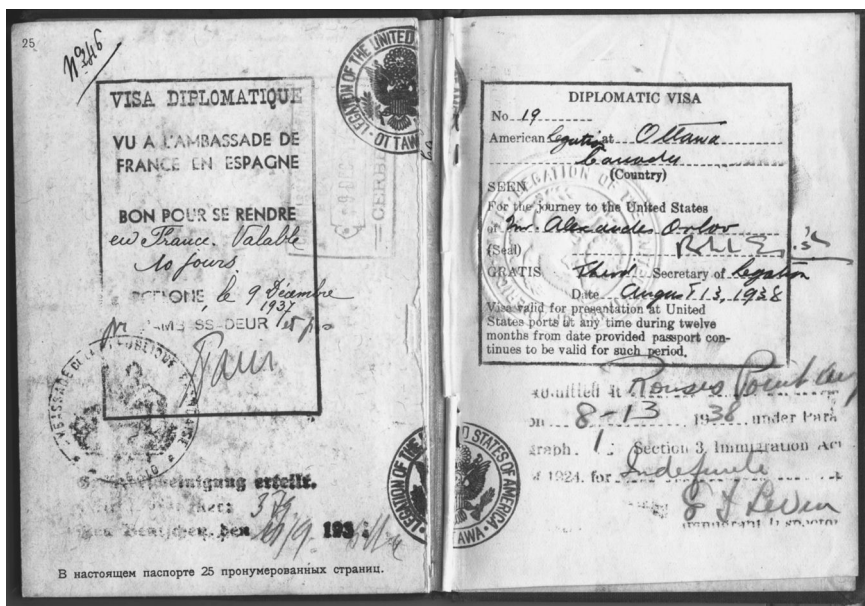 25
No 346
VISA DIPLOMATIQUE
VU A L'AMBASSADE DE
FRANCE EN ESPAGNE
BON POUR SE RENDRE
en France. Valable
10 jours.
le 9 Décembre
1937
erteilt.
В настоящем паспорте 25 пронумерованных страниц.
LEGATION OF THE UNITED
OTTAWA
DIPLOMATIC VISA
No. 19
American Legation at Ottawa
Canada
(Country)
SEEN
For the journey to the United States
of Mr. Alexander Orlov
(Seal)
GRATIS Third Secretary of Legation
Date August 13, 1938
Visa valid for presentation at United
States ports at any time during twelve
months from date provided passport con-
tinues to be valid for such period.
admitted at Rouses Point
on 8-13 1938 under Para
graph 1 Section 3, Immigration Act
of 1924. for Indefinite
Immigrant Inspector
LEGATION OF THE UNITED STATES OF AMERICA
OTTAWA